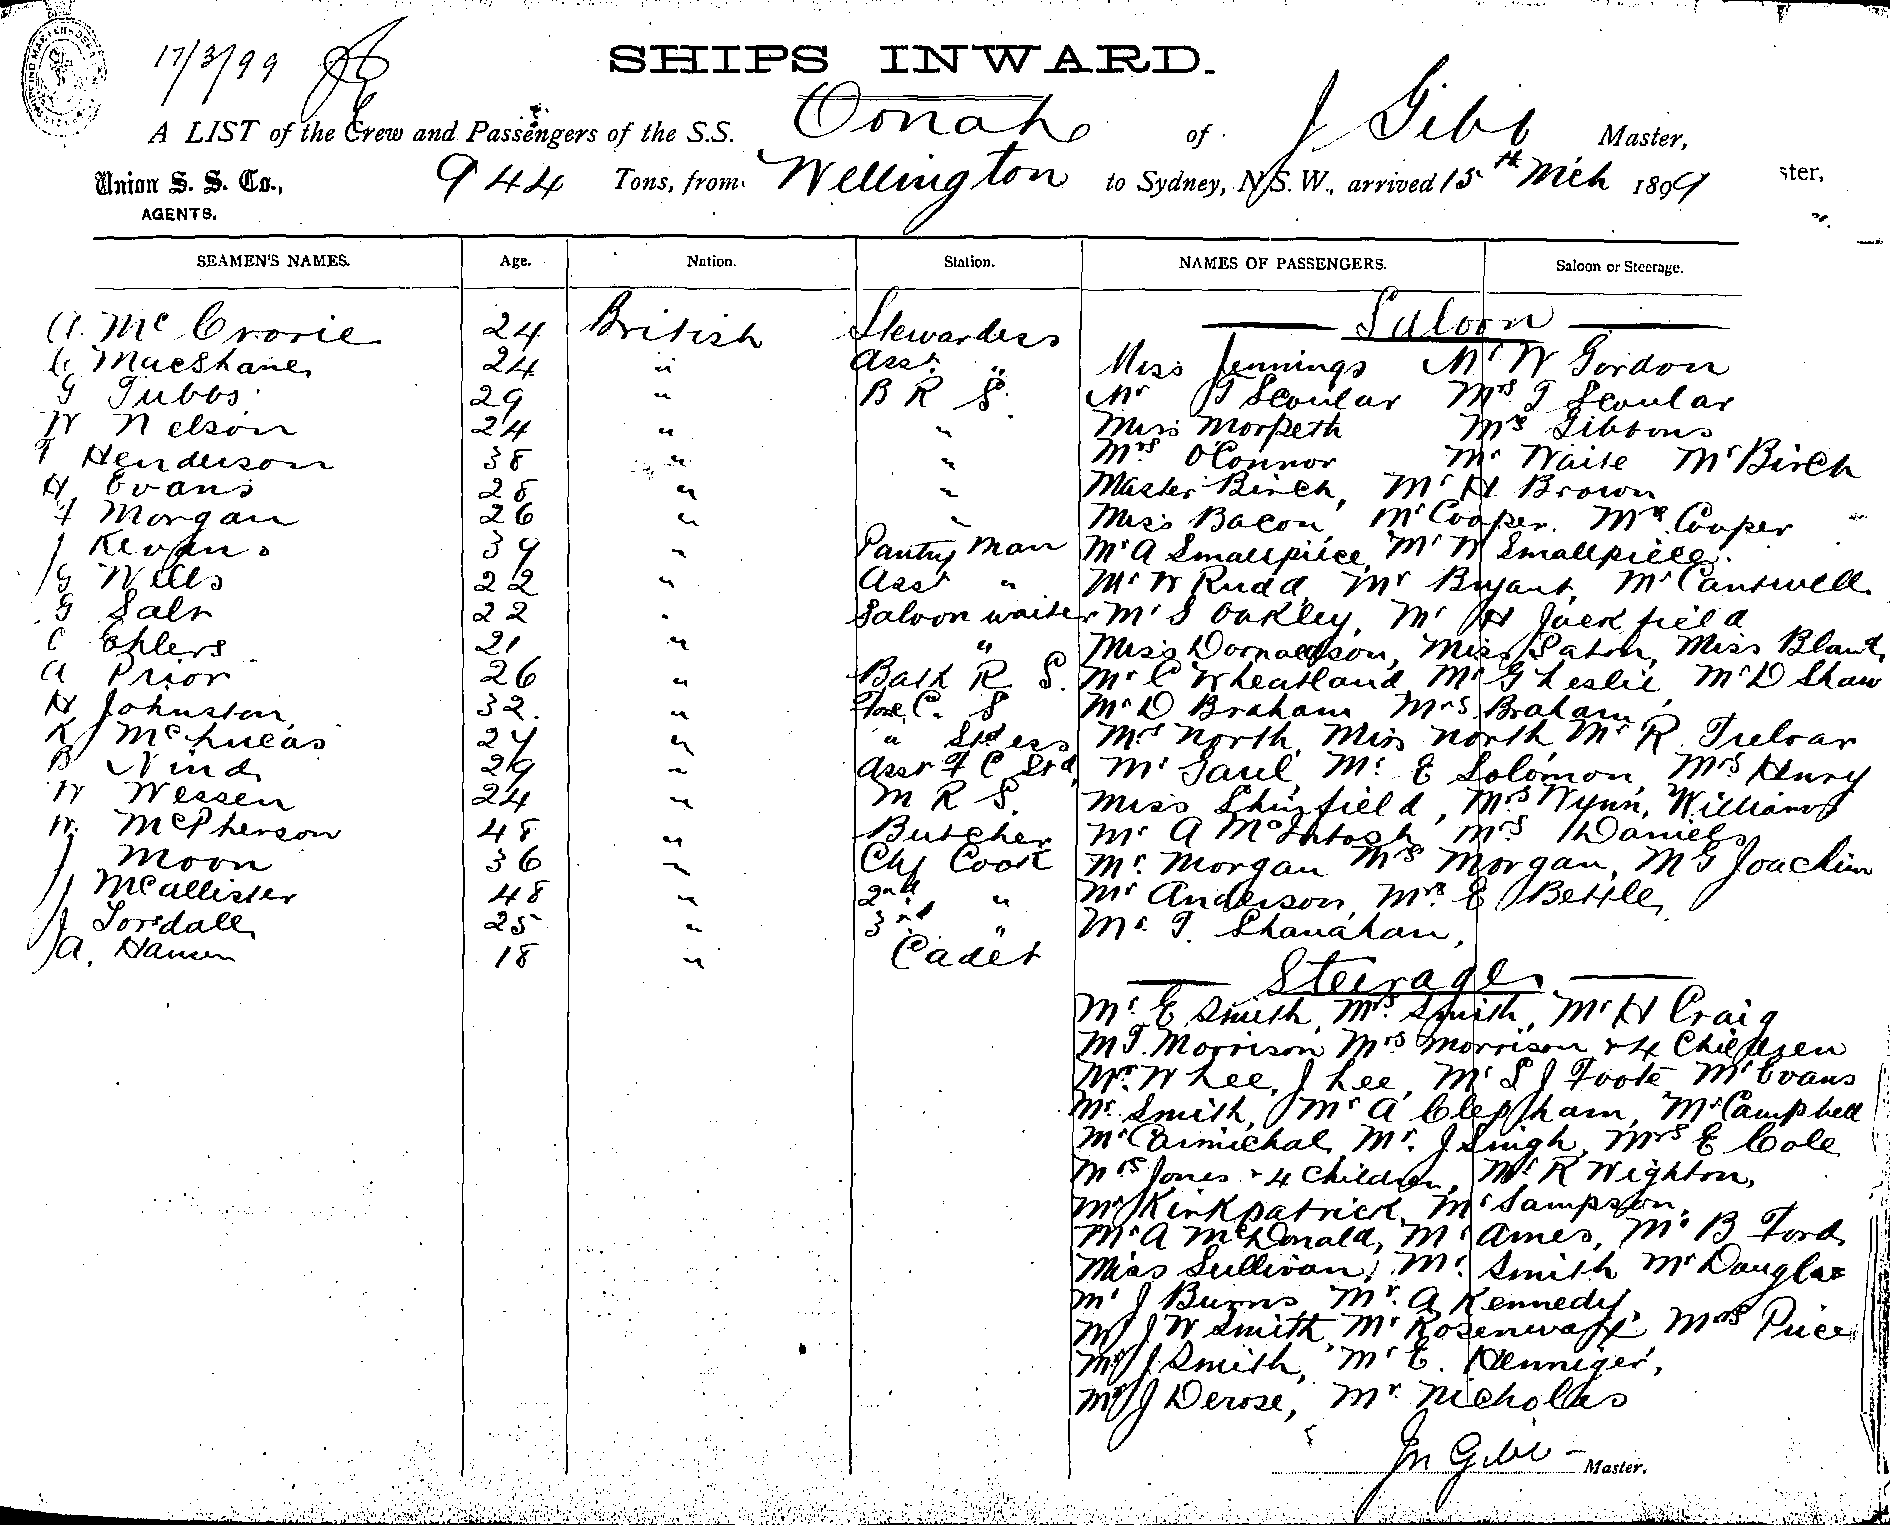 17/3/99
SHIPS INWARD.
A LIST of the Crew and Passengers of the S.S. Oonah of J Gibb Master,
Union S. S. Co., 944 Tons, from Wellington to Sydney, N.S.W., arrived 15th Mch 1899 ster,
AGENTS.
SEAMEN'S NAMES. Age. Nation. Station. NAMES OF PASSENGERS. Saloon or Steerage.
Saloon
A. McCrorie 24 British Stewardess
C MacShane 24 " Asst " Miss Jennings Mr W Gordon
G Tubbs 29 " B R S. Mr T Scoular Mrs T Scoular
W Nelson 24 " " Miss Morpeth Mrs Gibbons
T Henderson 38 " " Mrs O'Connor Mr Waite Mr Birch
H Evans 28 " " Master Birch, Mr H Brown
F Morgan 26 " " Miss Bacon, Mr Cooper. Mrs Cooper
J Kevans 39 " Pantry Man Mr A Smallpiece, Mr W Smallpiece,
G Wills 22 " Asst " Mr W Rudd, Mr Bryant, Mr Cantwell
G Salt 22 " Saloon waiter Mr S Oakley, Mr H Jackfield
C Ehlers 21 " " Miss Donaldson, Miss Eaton, Miss Blant,
A Prior 26 " Bath R S. Mr C Wheatland, Mr G Leslie, Mr D Shaw
H Johnston, 32. " Fore C. S Mr D Braham, Mrs Braham,
K McLucas 24 " " Stdess Mrs North, Miss North, Mr R Treloar
B Nind 29 " Asst F C Std, Mr Saul, Mr E Solomon, Mrs Henry
W Wessen 24 " M R S. Miss Shirfield, Mrs Wynn, Williams
W. McPherson 48 " Butcher Mr A McIntosh, Mrs Daniels
J Moon 36 " Chf Cook Mr Morgan Mrs Morgan, M G Joachim
J McAllister 48 " 2nd " Mr Anderson, Mrs E Bettle,
J Torsdall 25 " 3rd " Mr T. Shanahan,
A. Hansen 18 " Cadet
Steerage
Mr E Smith, Mrs Smith, Mr H Craig
M T. Morrison Mrs Morrison & 4 Children
Mr W Lee, J Lee, Mr S J Foote Mr Evans
Mr Smith, Mr A Clepham, Mr Campbell
Mr Carmichal, Mr. J Singh, Mrs E Cole
Mrs Jones & 4 Children, Mr R Wighton,
Mr Kirkpatrick, Mr Sampson,
Mr A McDonald, Mr Ames, Mr B Ford
Miss Sullivan, Mr. Smith Mr Douglas
Mr J Burns, Mr. A Kennedy,
M J W Smith, Mr Rosenwax, Mrs Price
Mr J Smith, Mr E. Henniger,
Mr J Derose, Mr Nicholas
Jn Gibb Master.